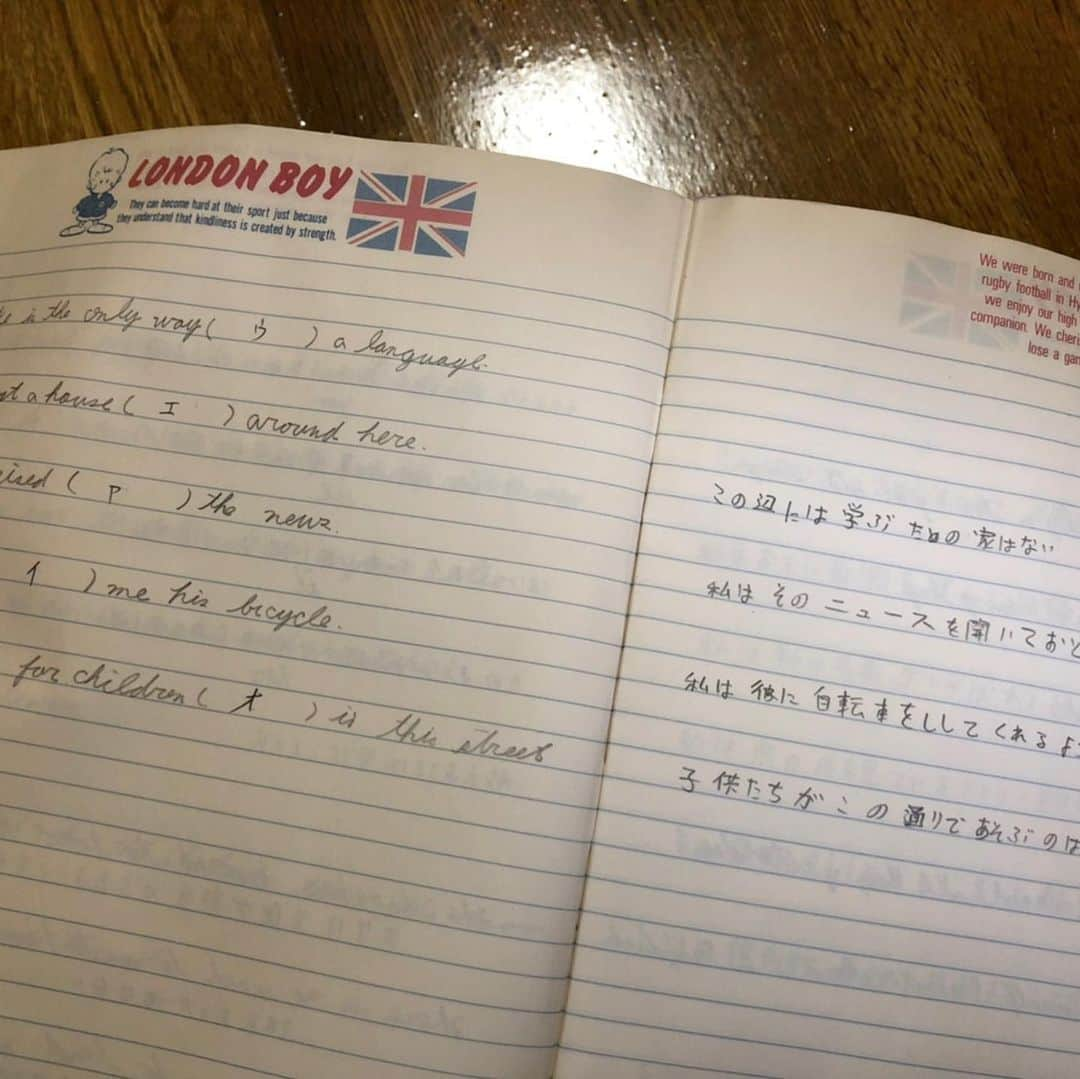 LONDON BOY
They can become hard at their sport just because
they understand that kindliness is created by strength.
is the only way ( ウ ) a language.
a house ( エ ) around here.
( ア ) the news.
イ ) me his bicycle.
for children ( オ ) is this street
We were born and
rugby football in Hy
we enjoy our high
companion. We cheris
lose a gam
この辺には学ぶための家はない
私はそのニュースを聞いておど
私は彼に自転車をししてくれるよ
子供たちがこの通りであそぶのは